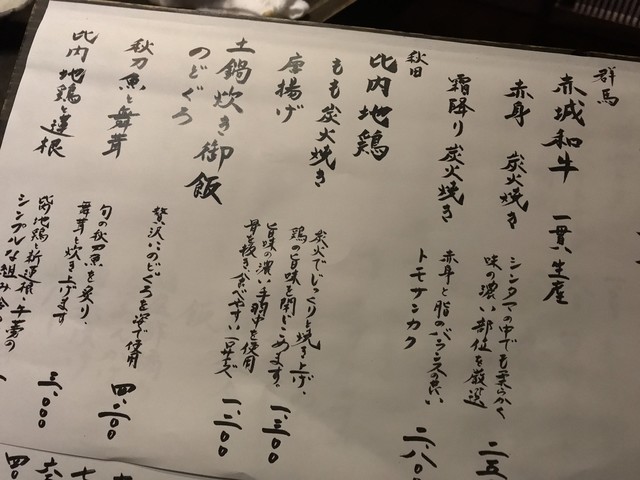 群馬
赤城和牛 一貫生産
赤身 炭火焼き
シンタマの中でも柔らかく
味の濃い部位を厳選
二五
霜降り 炭火焼き
赤身と脂のバランスの良い
トモサンカク
二、八〇〇
秋田
比内地鶏
もも炭火焼き
炭火でじっくりと焼き上げ、
鶏の旨味を閉じこめます。
一、三〇〇
唐揚げ
旨味の濃い手羽中を使用
骨を抜き食べやすい一品
一、二〇〇
土鍋炊き御飯
のどぐろ
贅沢にのどぐろを一姿で使用
四、二〇〇
秋刀魚と舞茸
旬の秋刀魚を炙り、
舞茸と炊き上げます
三、〇〇〇
比内地鶏と蓮根
地鶏と新蓮根
シンプルな組み合